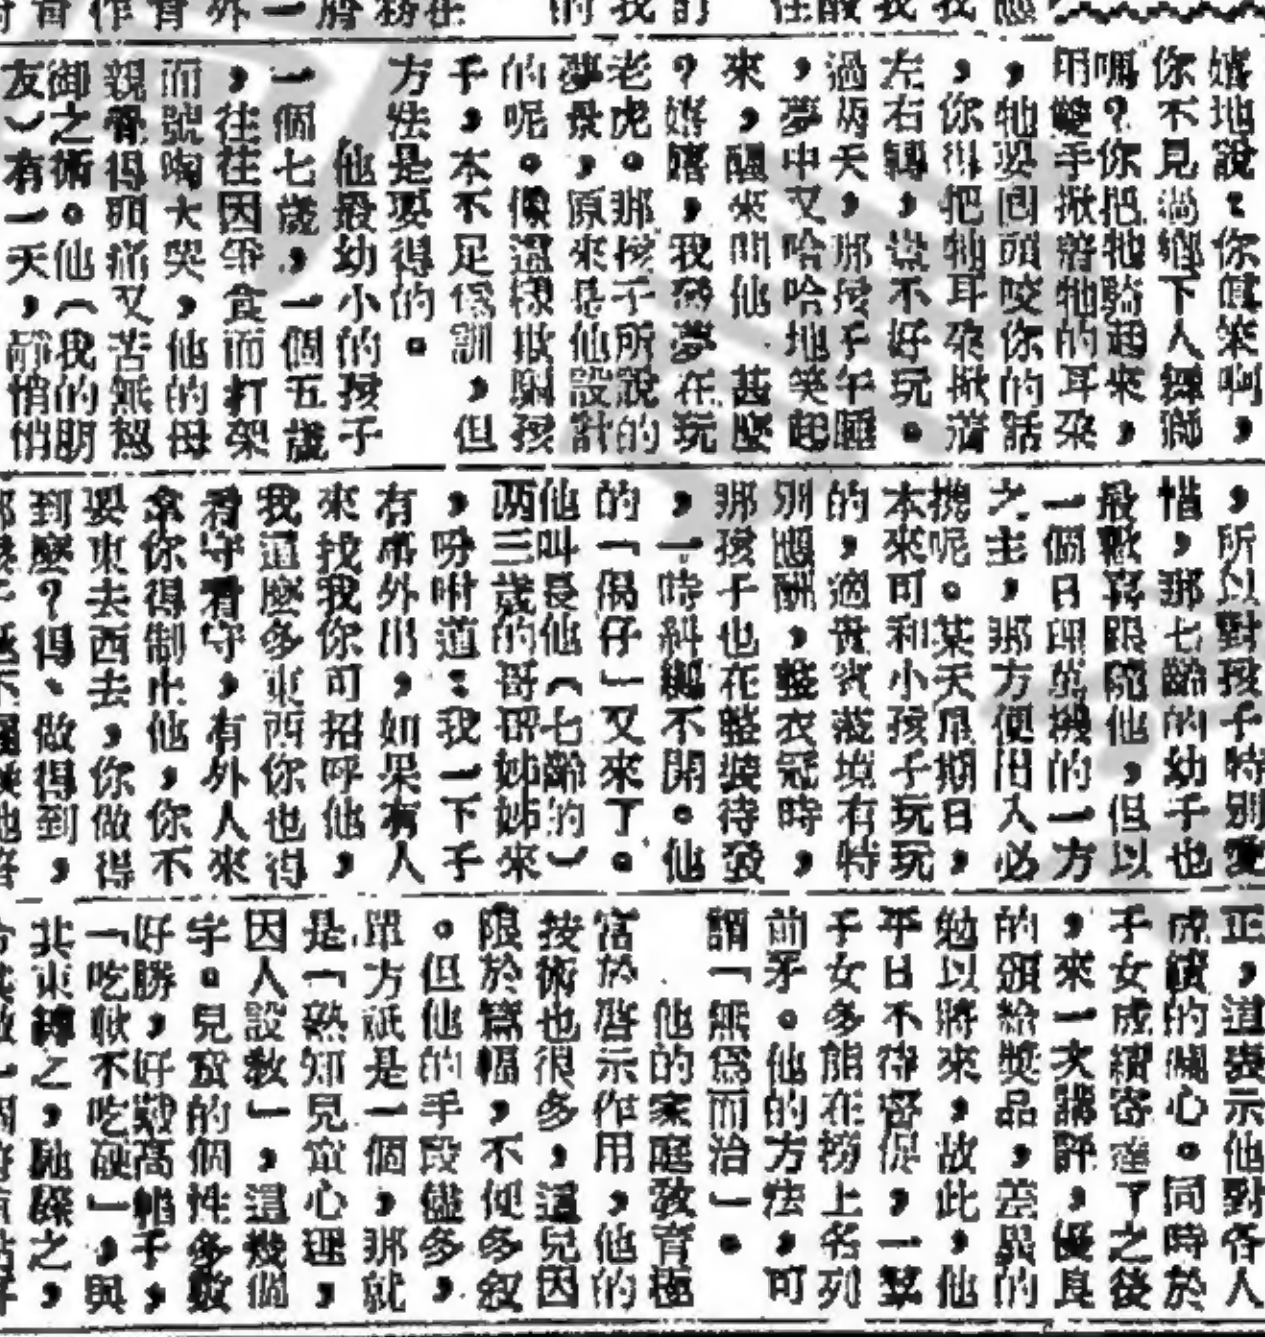 嬉地說：你眞笨啊，
你不見過鄉下人舞獅
嗎？你把牠騎起來，
用雙手揪着牠的耳朶
，牠要回頭咬你的話
，你得把牠耳朶揪着
左右轉，豈不好玩。
過兩天，那孩子午睡
，夢中又哈哈地笑起
來，醒來問他甚麼
？嬉嘻，我發夢在玩
老虎。那孩子所說的
夢景，原來是他設計
的呢。像這樣欺騙孩
子，本不足爲訓，但
方法是要得的。
他最幼小的孩子
一個七歲，一個五歲
，往往因爭食而打架
而號啕大哭，他的母
親覺得頭痛又苦無駕
御之術。他（我的朋
友）有一天，靜悄悄
，所以對孩子特別愛
惜，那七齡的幼子也
最歡喜跟隨他，但以
一個日理萬機的一方
之主，那方便出入必
攜呢。某天星期日，
本來可和小孩子玩玩
的，適貴賓蒞境有特
別應酬，整衣冠時，
那孩子也在整裝待發
，一時糾纏不開。他
的「偈仔」又來了。
他叫長他（七齡的）
兩三歲的哥哥姊姊來
，吩咐道：我一下子
有事外出，如果有人
來找我你可招呼他，
我這麼多東西你也得
看守看守，有外人來
拿你得制止他，你不
要東去西去，你做得
到麼？得、做得到，
正，道表示他對各人
成績的關心。同時於
子女成績寄達了之後
，來一次講評，優良
的頒給獎品，差異的
勉以將來，故此，他
平日不待督促，一羣
子女多能在榜上名列
前矛。他的方法，可
謂「無爲而治」。
他的家庭敎育極
富於啓示作用，他的
按術也很多，這兒因
限於篇幅，不便多叙
。但他的手段儘多，
單方祇是一個，那就
是「熟知兒童心理，
因人設敎」，這幾個
字。兒童的個性多數
好勝，好戴高帽子，
「吃軟不吃硬」，與
其東縛之，馳驟之，